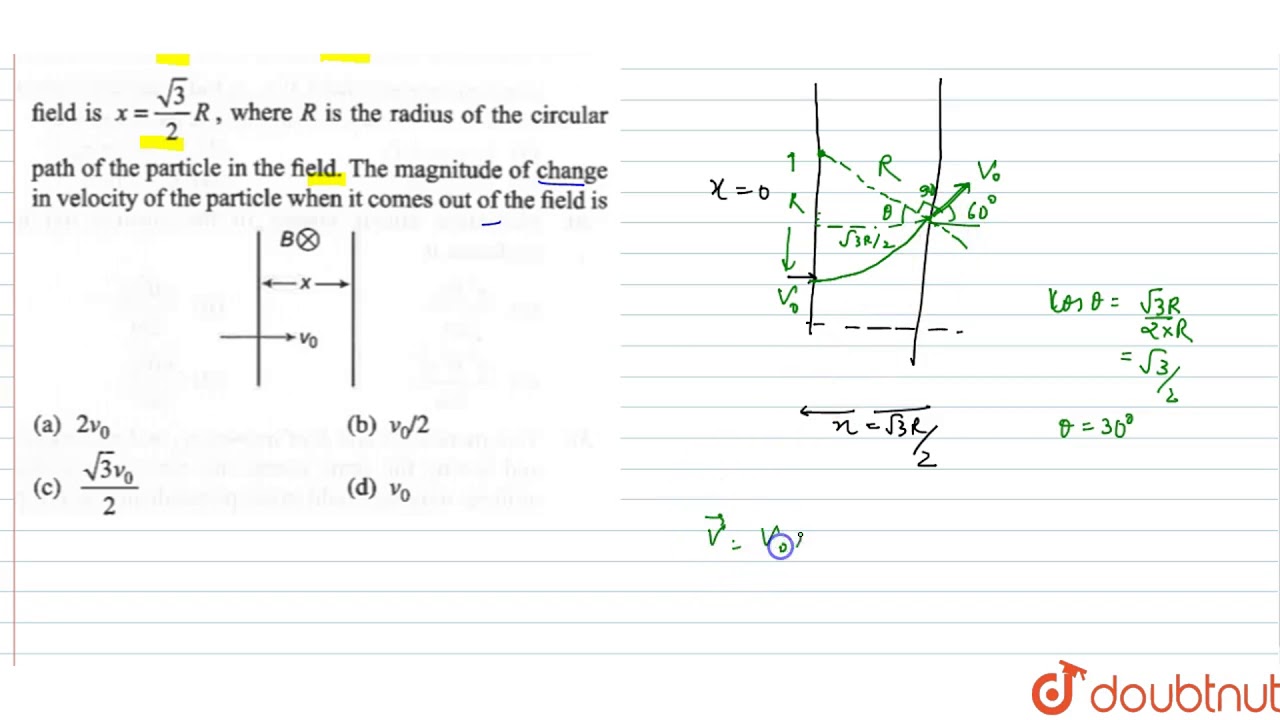 field is x = √3/2 R, where R is the radius of the circular
path of the particle in the field. The magnitude of change
in velocity of the particle when it comes out of the field is
B⊗
x
v₀
(a) 2v₀
(b) v₀/2
(c) √3v₀/2
(d) v₀
x = 0
1
R
R
90
V₀
θ
60°
√3R/2
V₀
x = √3R/2
Cos θ = √3R/2×R
= √3/2
θ = 30°
V⃗ = V₀
doubtnut